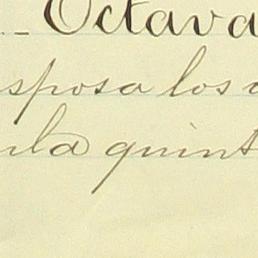 Octava
sposa los
la quint